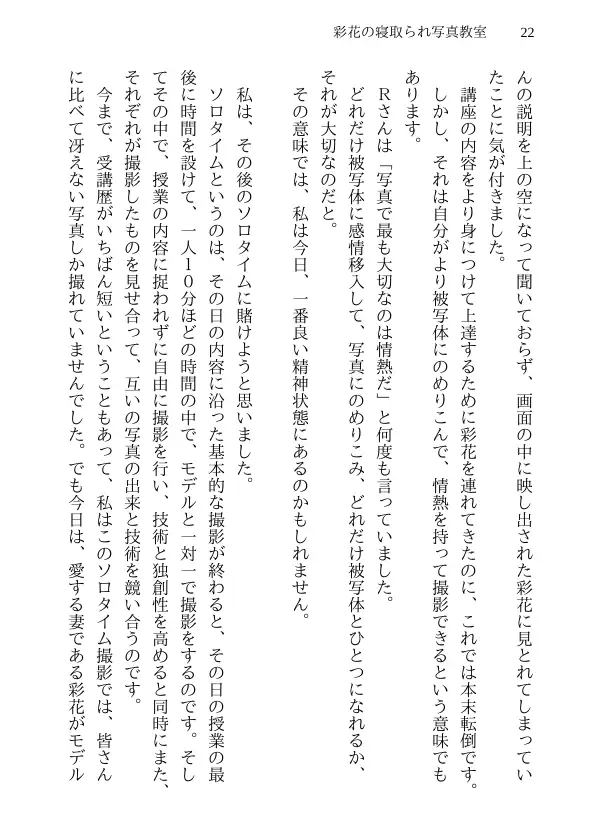 彩花の寝取られ写真教室
22
んの説明を上の空になって聞いておらず、画面の中に映し出された彩花に見とれてしまってい
たことに気が付きました。
講座の内容をより身につけて上達するために彩花を連れてきたのに、これでは本末転倒です。
しかし、それは自分がより被写体にのめりこんで、情熱を持って撮影できるという意味でも
あります。
Ｒさんは「写真で最も大切なのは情熱だ」と何度も言っていました。
どれだけ被写体に感情移入して、写真にのめりこみ、どれだけ被写体とひとつになれるか、
それが大切なのだと。
その意味では、私は今日、一番良い精神状態にあるのかもしれません。
私は、その後のソロタイムに賭けようと思いました。
ソロタイムというのは、その日の内容に沿った基本的な撮影が終わると、その日の授業の最
後に時間を設けて、一人１０分ほどの時間の中で、モデルと一対一で撮影をするのです。そし
てその中で、授業の内容に捉われずに自由に撮影を行い、技術と独創性を高めると同時にまた、
それぞれが撮影したものを見せ合って、互いの写真の出来と技術を競い合うのです。
今まで、受講歴がいちばん短いということもあって、私はこのソロタイム撮影では、皆さん
に比べて冴えない写真しか撮れていませんでした。でも今日は、愛する妻である彩花がモデル